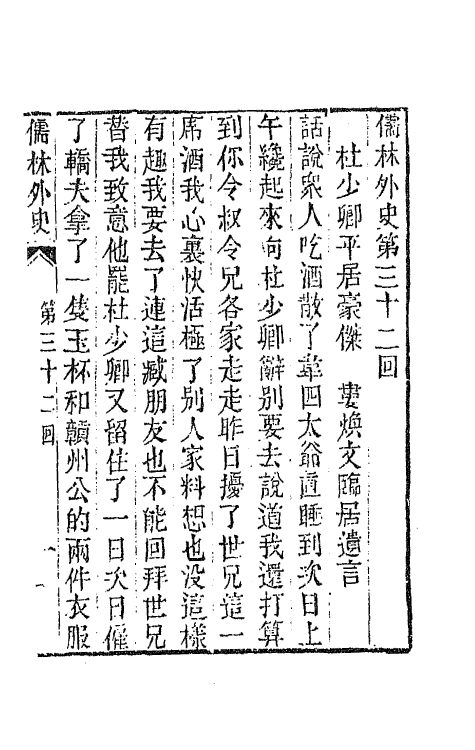 儒林外史第三十二回
杜少卿平居豪傑　婁煥文臨居遺言
話說衆人吃酒散了韋四太爺直睡到次日上
午纔起來向杜少卿辭別要去說道我還打算
到你令叔令兄各家走走昨日擾了世兄這一
席酒我心裏快活極了別人家料想也没這樣
有趣我要去了連這臧朋友也不能回拜世兄
替我致意他罷杜少卿又留住了一日次日僱
了轎夫拿了一隻玉杯和贛州公的兩件衣服
儒林外史　第三十二回